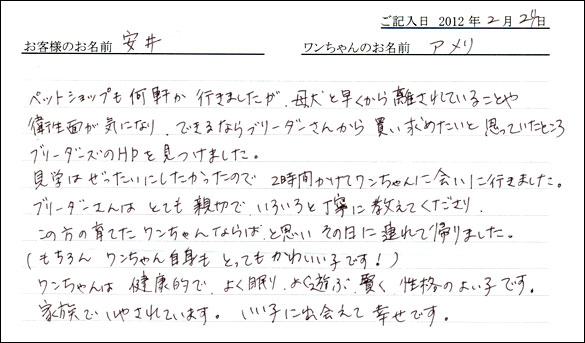 ご記入日 2012 年 2 月 24 日
お客様のお名前 安井 ワンちゃんのお名前 アメリ
ペットショップも何軒か行きましたが、母犬と早くから離されていることや
衛生面が気になり、できるならブリーダーさんから買い求めたいと思っていたところ
ブリーダーズのHPを見つけました。
見学はぜったいにしたかったので 2時間かけてワンちゃんに会いに行きました。
ブリーダーさんは とても親切で、いろいろと丁寧に教えてくださり、
この方の育てたワンちゃんならば、と思い その日に連れて帰りました。
(もちろん ワンちゃん自身も とってもかわいい子です!)
ワンちゃんは 健康的で、よく眠り、よく遊ぶ、賢く 性格のよい子です。
家族でいやされています。 いい子に出会えて 幸せです。